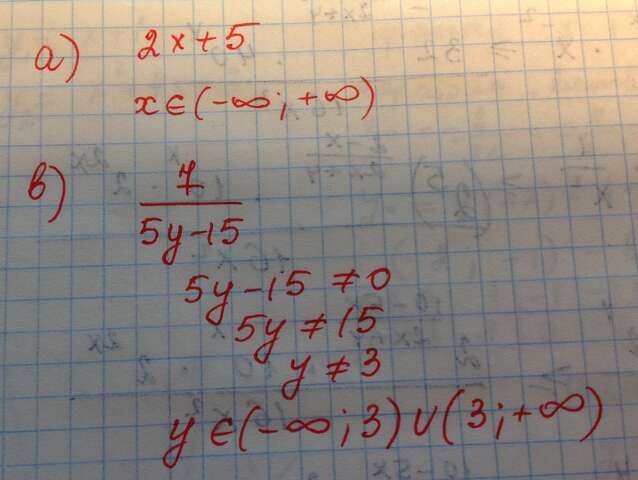 а) 2x+5
x∈(-∞; +∞)
в) 7
5y-15
5y-15 ≠0
5y≠15
y≠3
y∈(-∞;3)∪(3;+∞)